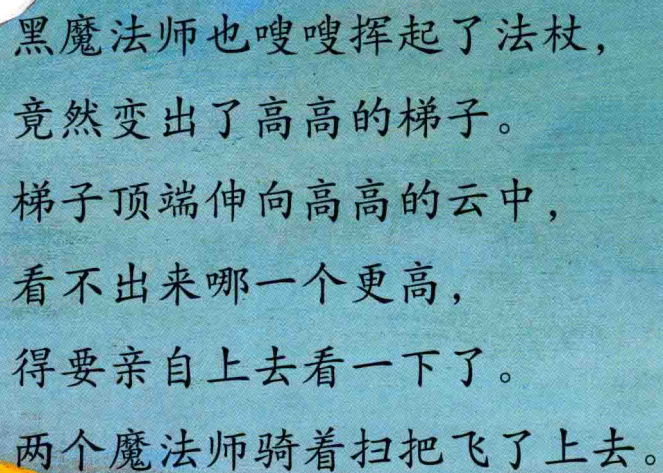 黑魔法师也嗖嗖挥起了法杖，
竟然变出了高高的梯子。
梯子顶端伸向高高的云中，
看不出来哪一个更高，
得要亲自上去看一下了。
两个魔法师骑着扫把飞了上去。